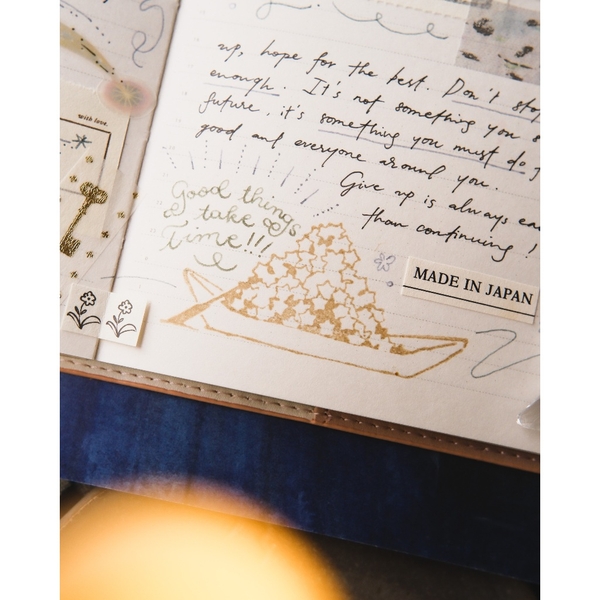 up, hope for the best. Don't stop
enough. It's not something you
future, it's something you must do
good and everyone around you.
Give up is always
than continuing!
Good things
take
Time!!!
with love,
MADE IN JAPAN